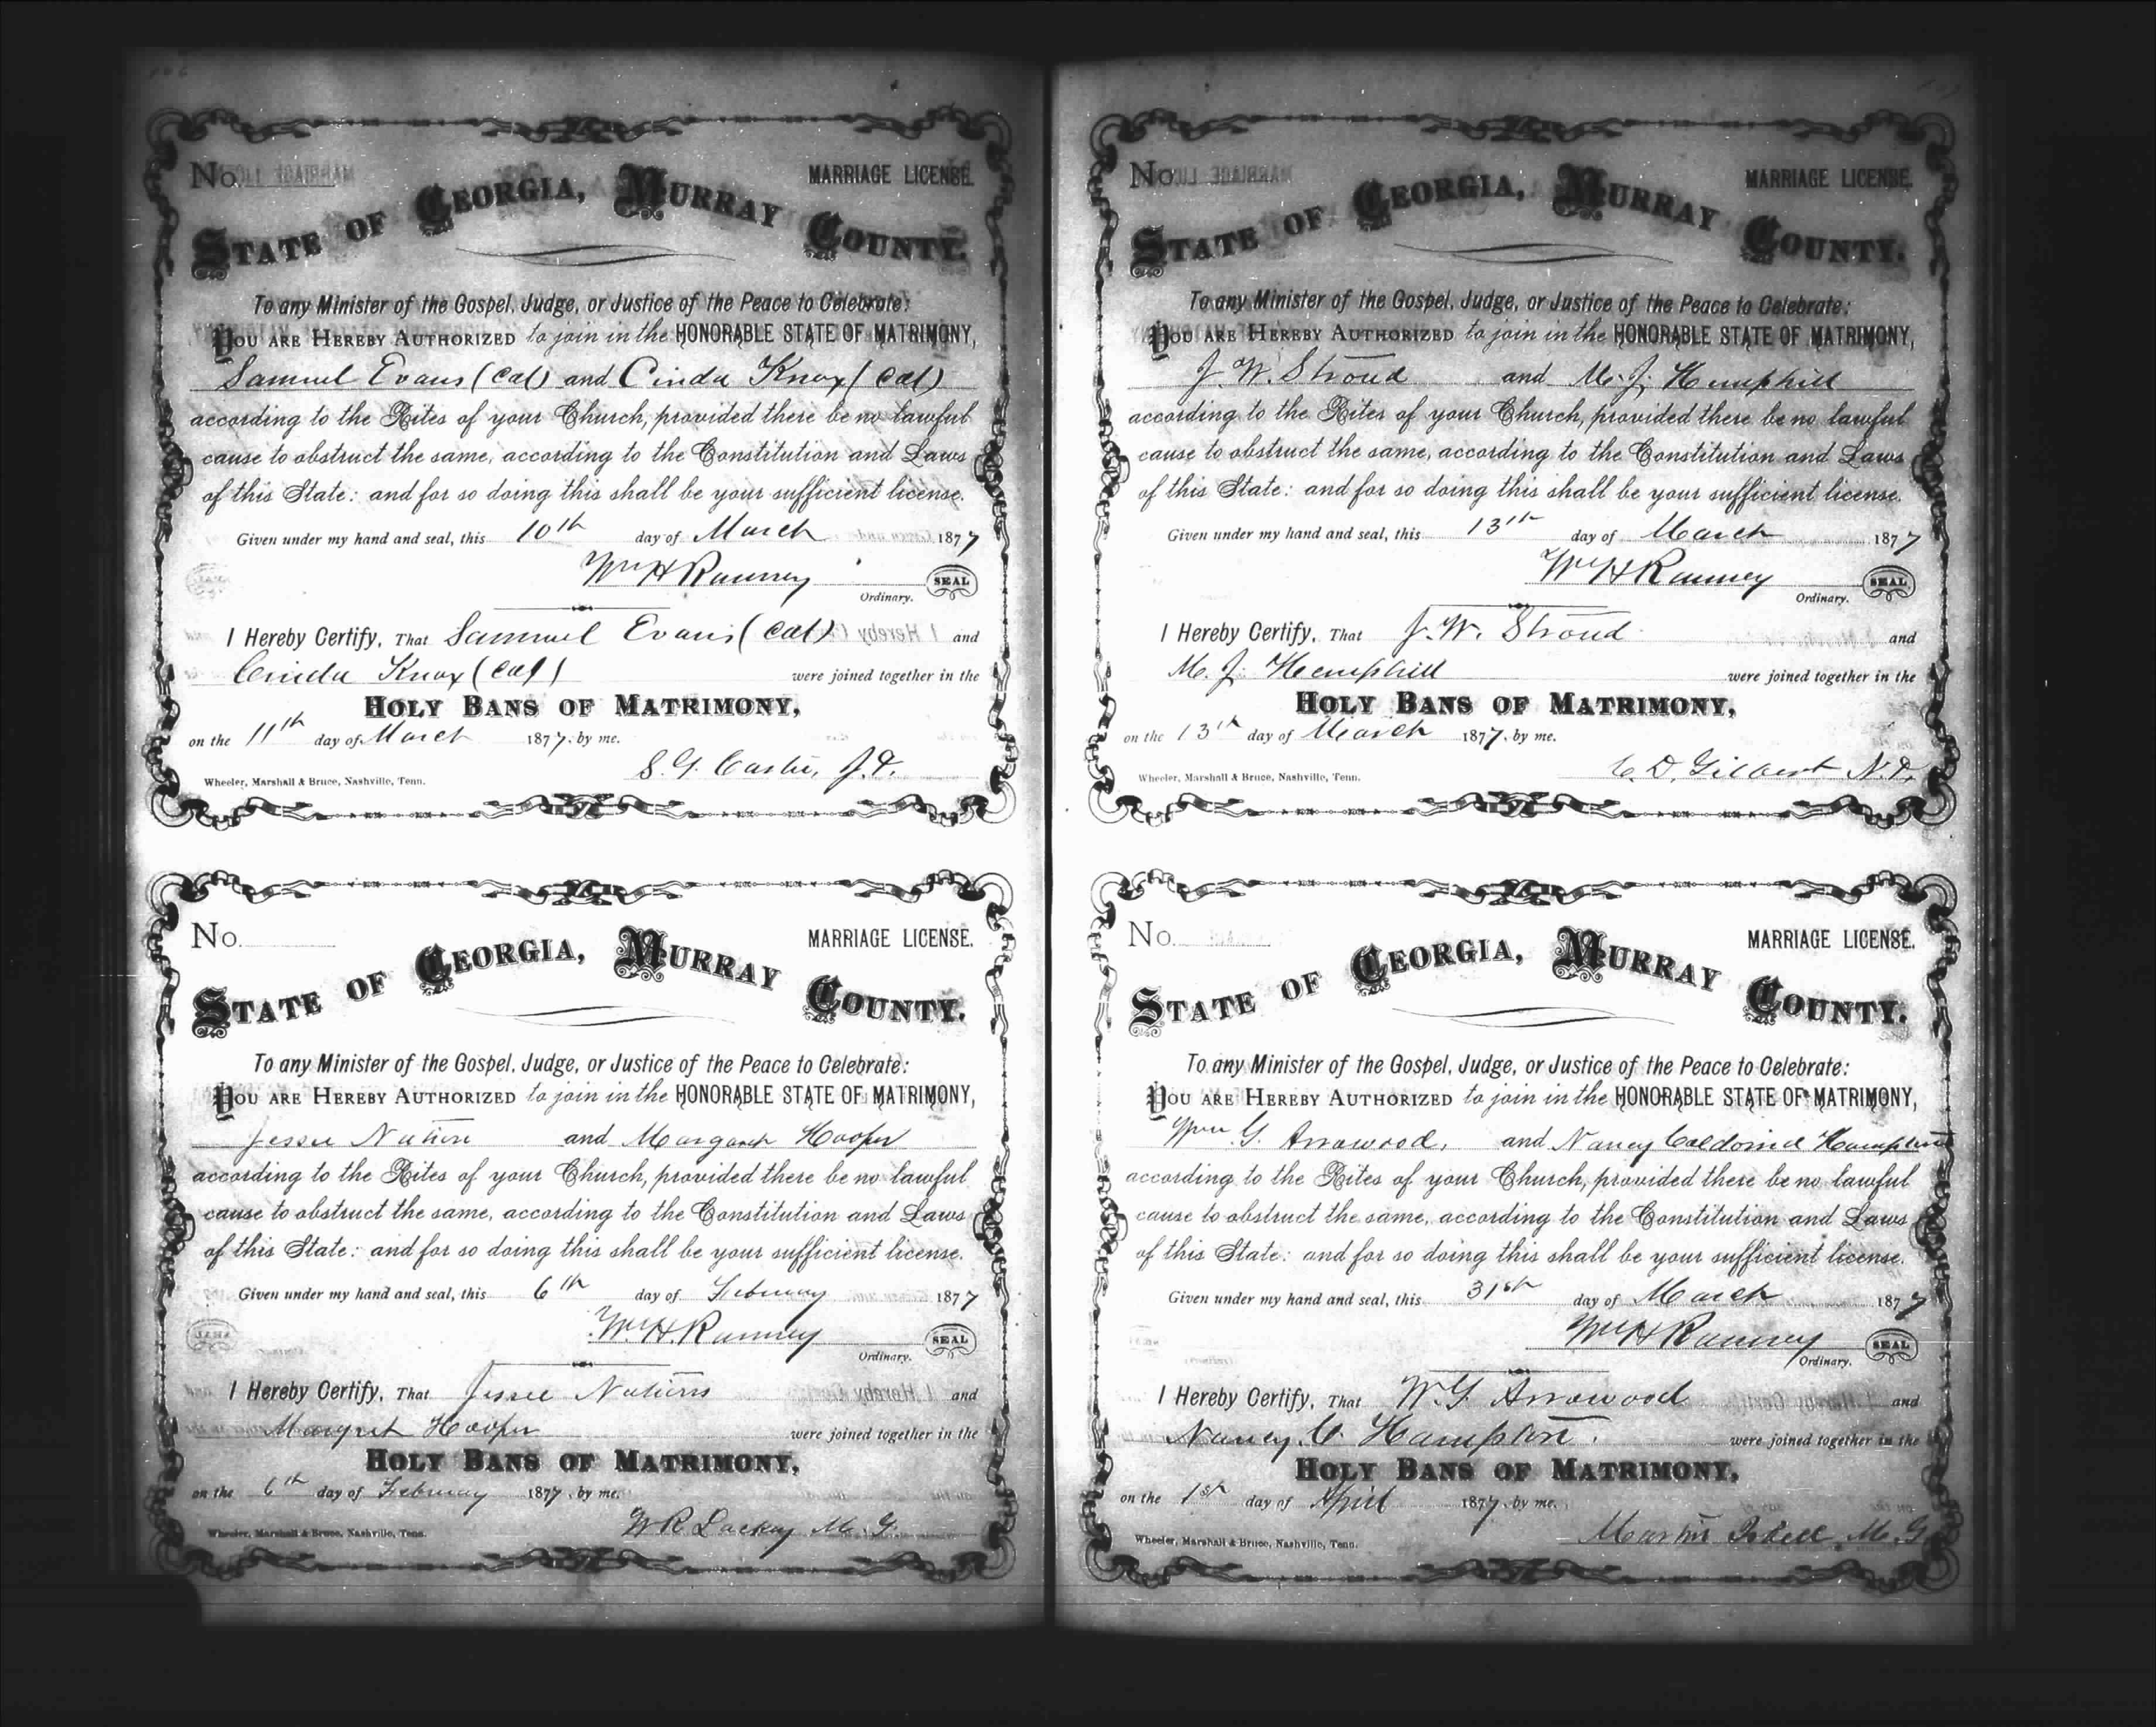 No.
MARRIAGE LICENSE.
STATE OF GEORGIA, MURRAY COUNTY.
To any Minister of the Gospel, Judge, or Justice of the Peace to Celebrate:
YOU ARE HEREBY AUTHORIZED to join in the HONORABLE STATE OF MATRIMONY,
Samuel Evans (Col) and Cinda Knox (Col)
according to the Rites of your Church, provided there be no lawful
cause to obstruct the same, according to the Constitution and Laws
of this State: and for so doing this shall be your sufficient license.
Given under my hand and seal, this 10th day of March 1877
Wm H Ramsey SEAL
Ordinary.
I Hereby Certify, That Samuel Evans (Col) and
Cinda Knox (Col) were joined together in the
HOLY BANS OF MATRIMONY,
on the 11th day of March 1877. by me.
S. G. Carter, J.P.
Wheeler, Marshall & Bruce, Nashville, Tenn.
No.
MARRIAGE LICENSE.
STATE OF GEORGIA, MURRAY COUNTY.
To any Minister of the Gospel, Judge, or Justice of the Peace to Celebrate:
YOU ARE HEREBY AUTHORIZED to join in the HONORABLE STATE OF MATRIMONY,
Jessee Nations and Margaret Hooper
according to the Rites of your Church, provided there be no lawful
cause to obstruct the same, according to the Constitution and Laws
of this State: and for so doing this shall be your sufficient license.
Given under my hand and seal, this 6th day of February 1877
Wm. H. Ramsey SEAL
Ordinary.
I Hereby Certify, That Jessee Nations and
Margret Hooper were joined together in the
HOLY BANS OF MATRIMONY,
on the 6th day of February 1877. by me.
W R Lackey M. G.
Wheeler, Marshall & Bruce, Nashville, Tenn.
No.
MARRIAGE LICENSE.
STATE OF GEORGIA, MURRAY COUNTY.
To any Minister of the Gospel, Judge, or Justice of the Peace to Celebrate:
YOU ARE HEREBY AUTHORIZED to join in the HONORABLE STATE OF MATRIMONY,
J. W. Stroud and M. J. Hemphill
according to the Rites of your Church, provided there be no lawful
cause to obstruct the same, according to the Constitution and Laws
of this State: and for so doing this shall be your sufficient license.
Given under my hand and seal, this 13th day of March 1877
Wm H Ramsey SEAL
Ordinary.
I Hereby Certify, That J. W. Stroud and
M. J. Hemphill were joined together in the
HOLY BANS OF MATRIMONY,
on the 13th day of March 1877. by me.
C. D. Gilbert N.P.
Wheeler, Marshall & Bruce, Nashville, Tenn.
No.
MARRIAGE LICENSE.
STATE OF GEORGIA, MURRAY COUNTY.
To any Minister of the Gospel, Judge, or Justice of the Peace to Celebrate:
YOU ARE HEREBY AUTHORIZED to join in the HONORABLE STATE OF MATRIMONY,
Wm G. Arrowood, and Nancy Caldonia Hampton
according to the Rites of your Church, provided there be no lawful
cause to obstruct the same, according to the Constitution and Laws
of this State: and for so doing this shall be your sufficient license.
Given under my hand and seal, this 31st day of March 1877
Wm H Ramsey SEAL
Ordinary.
I Hereby Certify, That W. G. Arrowood and
Nancy C. Hampton. were joined together in the
HOLY BANS OF MATRIMONY,
on the 1st day of April 1877. by me.
Martin M. G.
Wheeler, Marshall & Bruce, Nashville, Tenn.